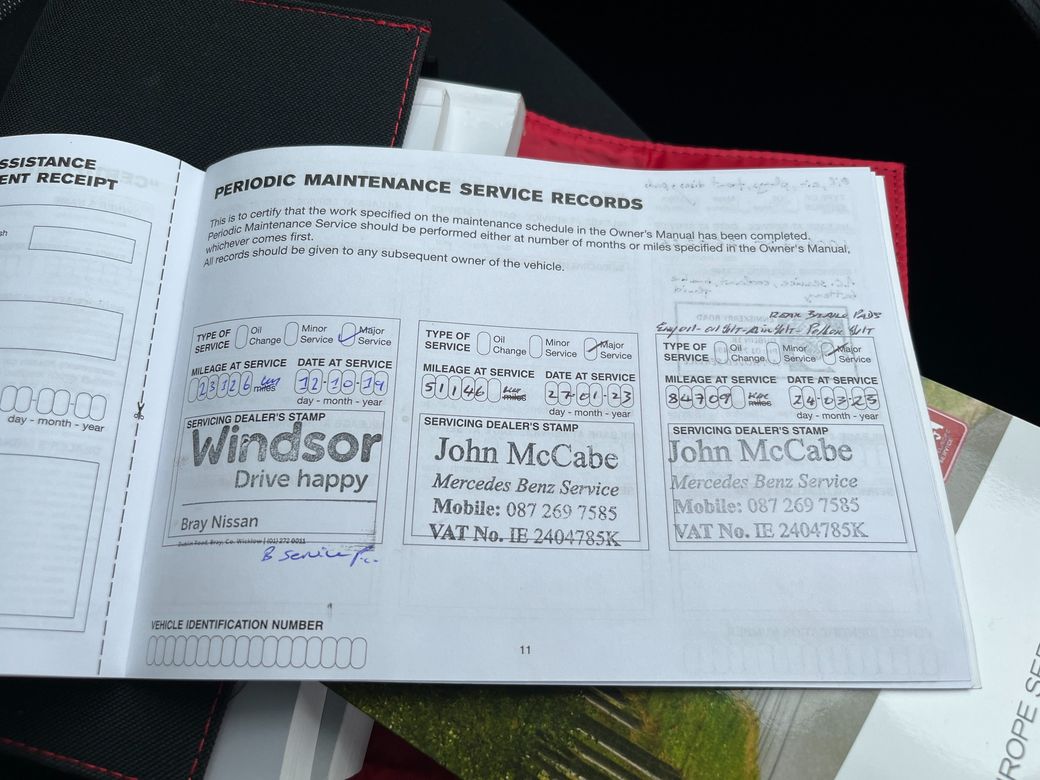 SSISTANCE
ENT RECEIPT
sh
day - month - year
PERIODIC MAINTENANCE SERVICE RECORDS
This is to certify that the work specified on the maintenance schedule in the Owner's Manual has been completed.
Periodic Maintenance Service should be performed either at number of months or miles specified in the Owner's Manual,
whichever comes first.
All records should be given to any subsequent owner of the vehicle.
TYPE OF SERVICE Oil Change Minor Service Major Service
MILEAGE AT SERVICE DATE AT SERVICE
23126 km miles 12-10-19
day - month - year
SERVICING DEALER'S STAMP
Windsor
Drive happy
Bray Nissan
Dublin Road, Bray, Co. Wicklow | (01) 272 0011
B Service
TYPE OF SERVICE Oil Change Minor Service Major Service
MILEAGE AT SERVICE DATE AT SERVICE
51146 km miles 27-01-23
day - month - year
SERVICING DEALER'S STAMP
John McCabe
Mercedes Benz Service
Mobile: 087 269 7585
VAT No. IE 2404785K
REAR BRAKE PADS
TYPE OF SERVICE Oil Change Minor Service Major Service
MILEAGE AT SERVICE DATE AT SERVICE
84709 km miles 24-03-25
day - month - year
SERVICING DEALER'S STAMP
John McCabe
Mercedes Benz Service
Mobile: 087 269 7585
VAT No. IE 2404785K
VEHICLE IDENTIFICATION NUMBER
11
ROPE SE